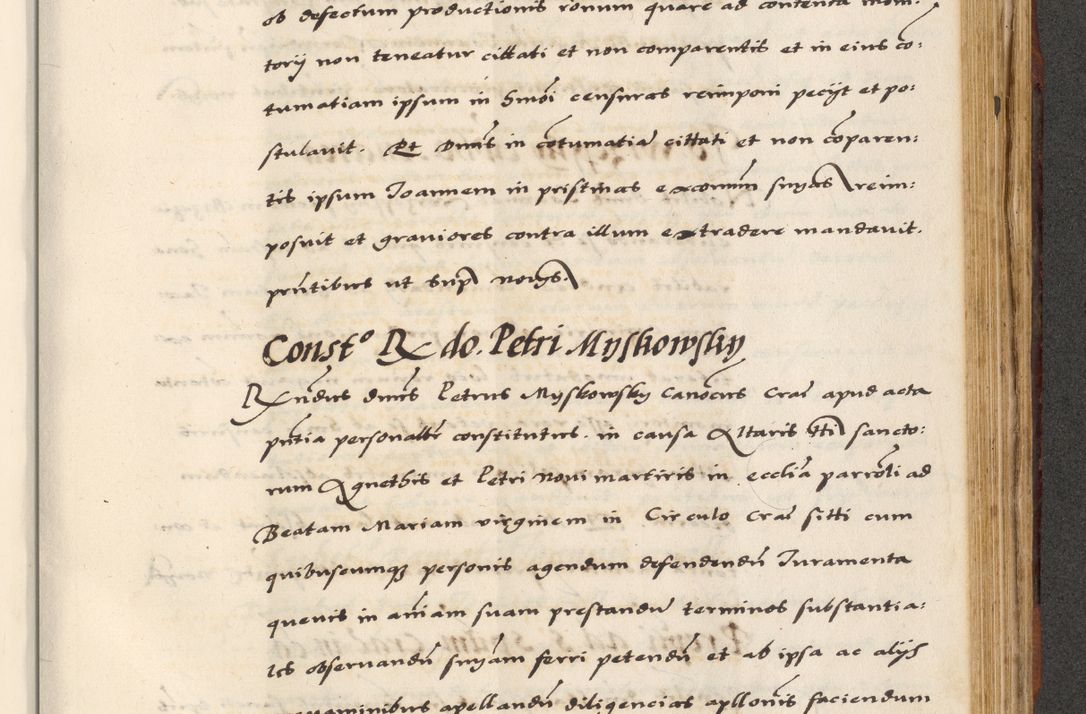 ob defectum productionis ionum quare ad contenta moni:
torij non teneatur cittati et non comparentis et in eius co:
tumatiam ipsum in Smõi censuras reimponi pecijt et po:
stulavit. Et Dnũs in cõtumatiã cittati et non cõparen:
tis ipsum Joannem in pristinas excomũm snyas reim:
posuit et graviores contra illum extradere mandavit.
pñtibus ut supͣ noigs.
Constᵒ R do. Petri Myskowsky
Rñdus dnũs Petrus Myskowsky Canõcus Craẽ apud acta
pñtia personalr̃ constitutus. in causa Altaris tti sancto:
rum Agnethis et Petri novi martiris in ecclĩa parrõli ad
Beatam Mariam virginem in Circulo Craẽ sitti cum
quibuscumqꝫ personis agendum defendendũ Juramenta
quevis in aĩam suam prestandũ terminos substantia:
les observandũ snyam ferri petendũ et ab ipsa ac alijs
apellandũ diligencias apllonis faciendum